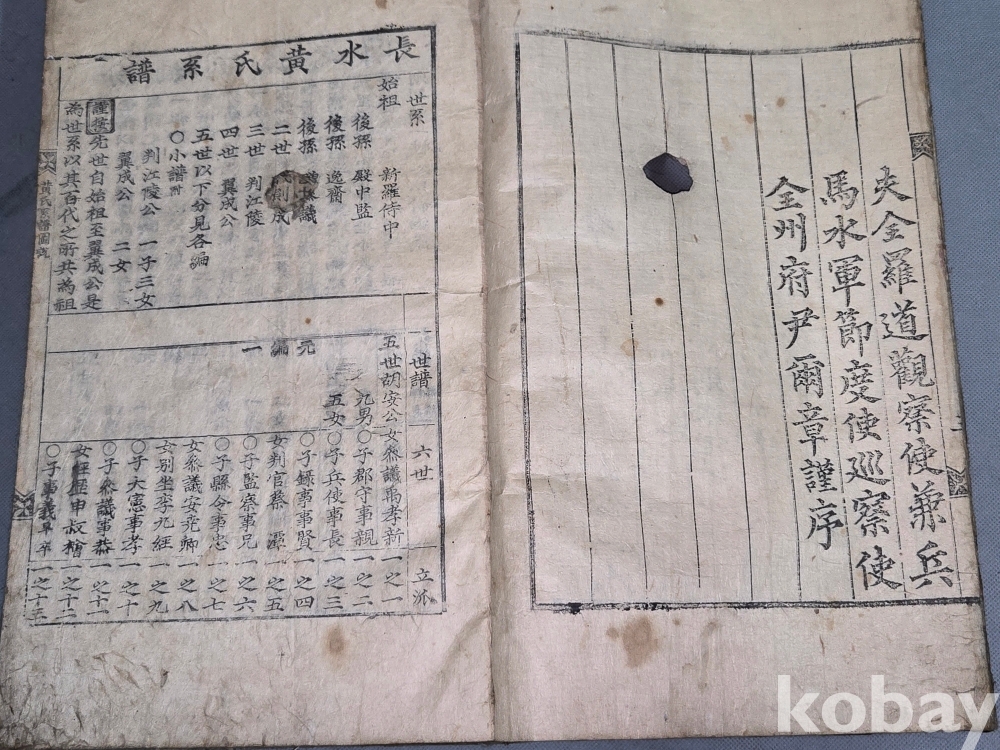 夫全羅道觀察使兼兵
馬水軍節度使巡察使
全州府尹爾章謹序
長水黃氏系譜
世系
始祖 新羅侍中
後孫 殿中監
後孫 逸齋
後孫 議
二世
三世 判江陵
四世 翼成公
五世以下分見各編
○小譜附
判江陵公 一子三女
翼成公 二女
謹按先世自始祖至翼成公是
為世系以其百代之所共為祖
世譜 六世 立派
五世胡安公 女參議禹孝新 一之一
九男 ○子郡守事親 一之二
五女 ○子兵使事長 一之三
元編一
○子錄事事賢 一之四
女判官蔡潭 一之五
○子監察事兄 一之六
○子縣令事忠 一之七
女參議安堯卿 一之八
女別坐李九經 一之九
○子大憲事孝 一之十
○子參議事恭 一之十一
女經歷申叔檜 一之十二
○子事義早卒 一之十三
黃氏系譜
kobay